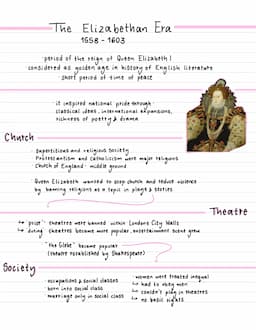 The Elizabethan Era
1558 - 1603
· period of the reign of Queen Elizabeth I
· considered as golden age in history of English literature
· short period of time of peace
· it inspired national pride through
classical ideas, international expansions,
richness of poetry & drama
Church
· superstitious and religious society
· Protestantism and catholicism were major religions
· Church of England : middle ground
· Queen Elizabeth wanted to stop church and reduce violence
by banning religions as a topic in plays & stories
Theatre
↳ prior : theatres were banned within London City Walls
↳ during : theatres become more popular, entertainment scent grew
· "The Globe" became popular
(theatre established by Shakespeare)
Society
· occupations & social classes
· born into social class
· marriage only in social class
· women were treated inequal
↳ had to obey men
↳ couldn't play in theatres
↳ no basic rights